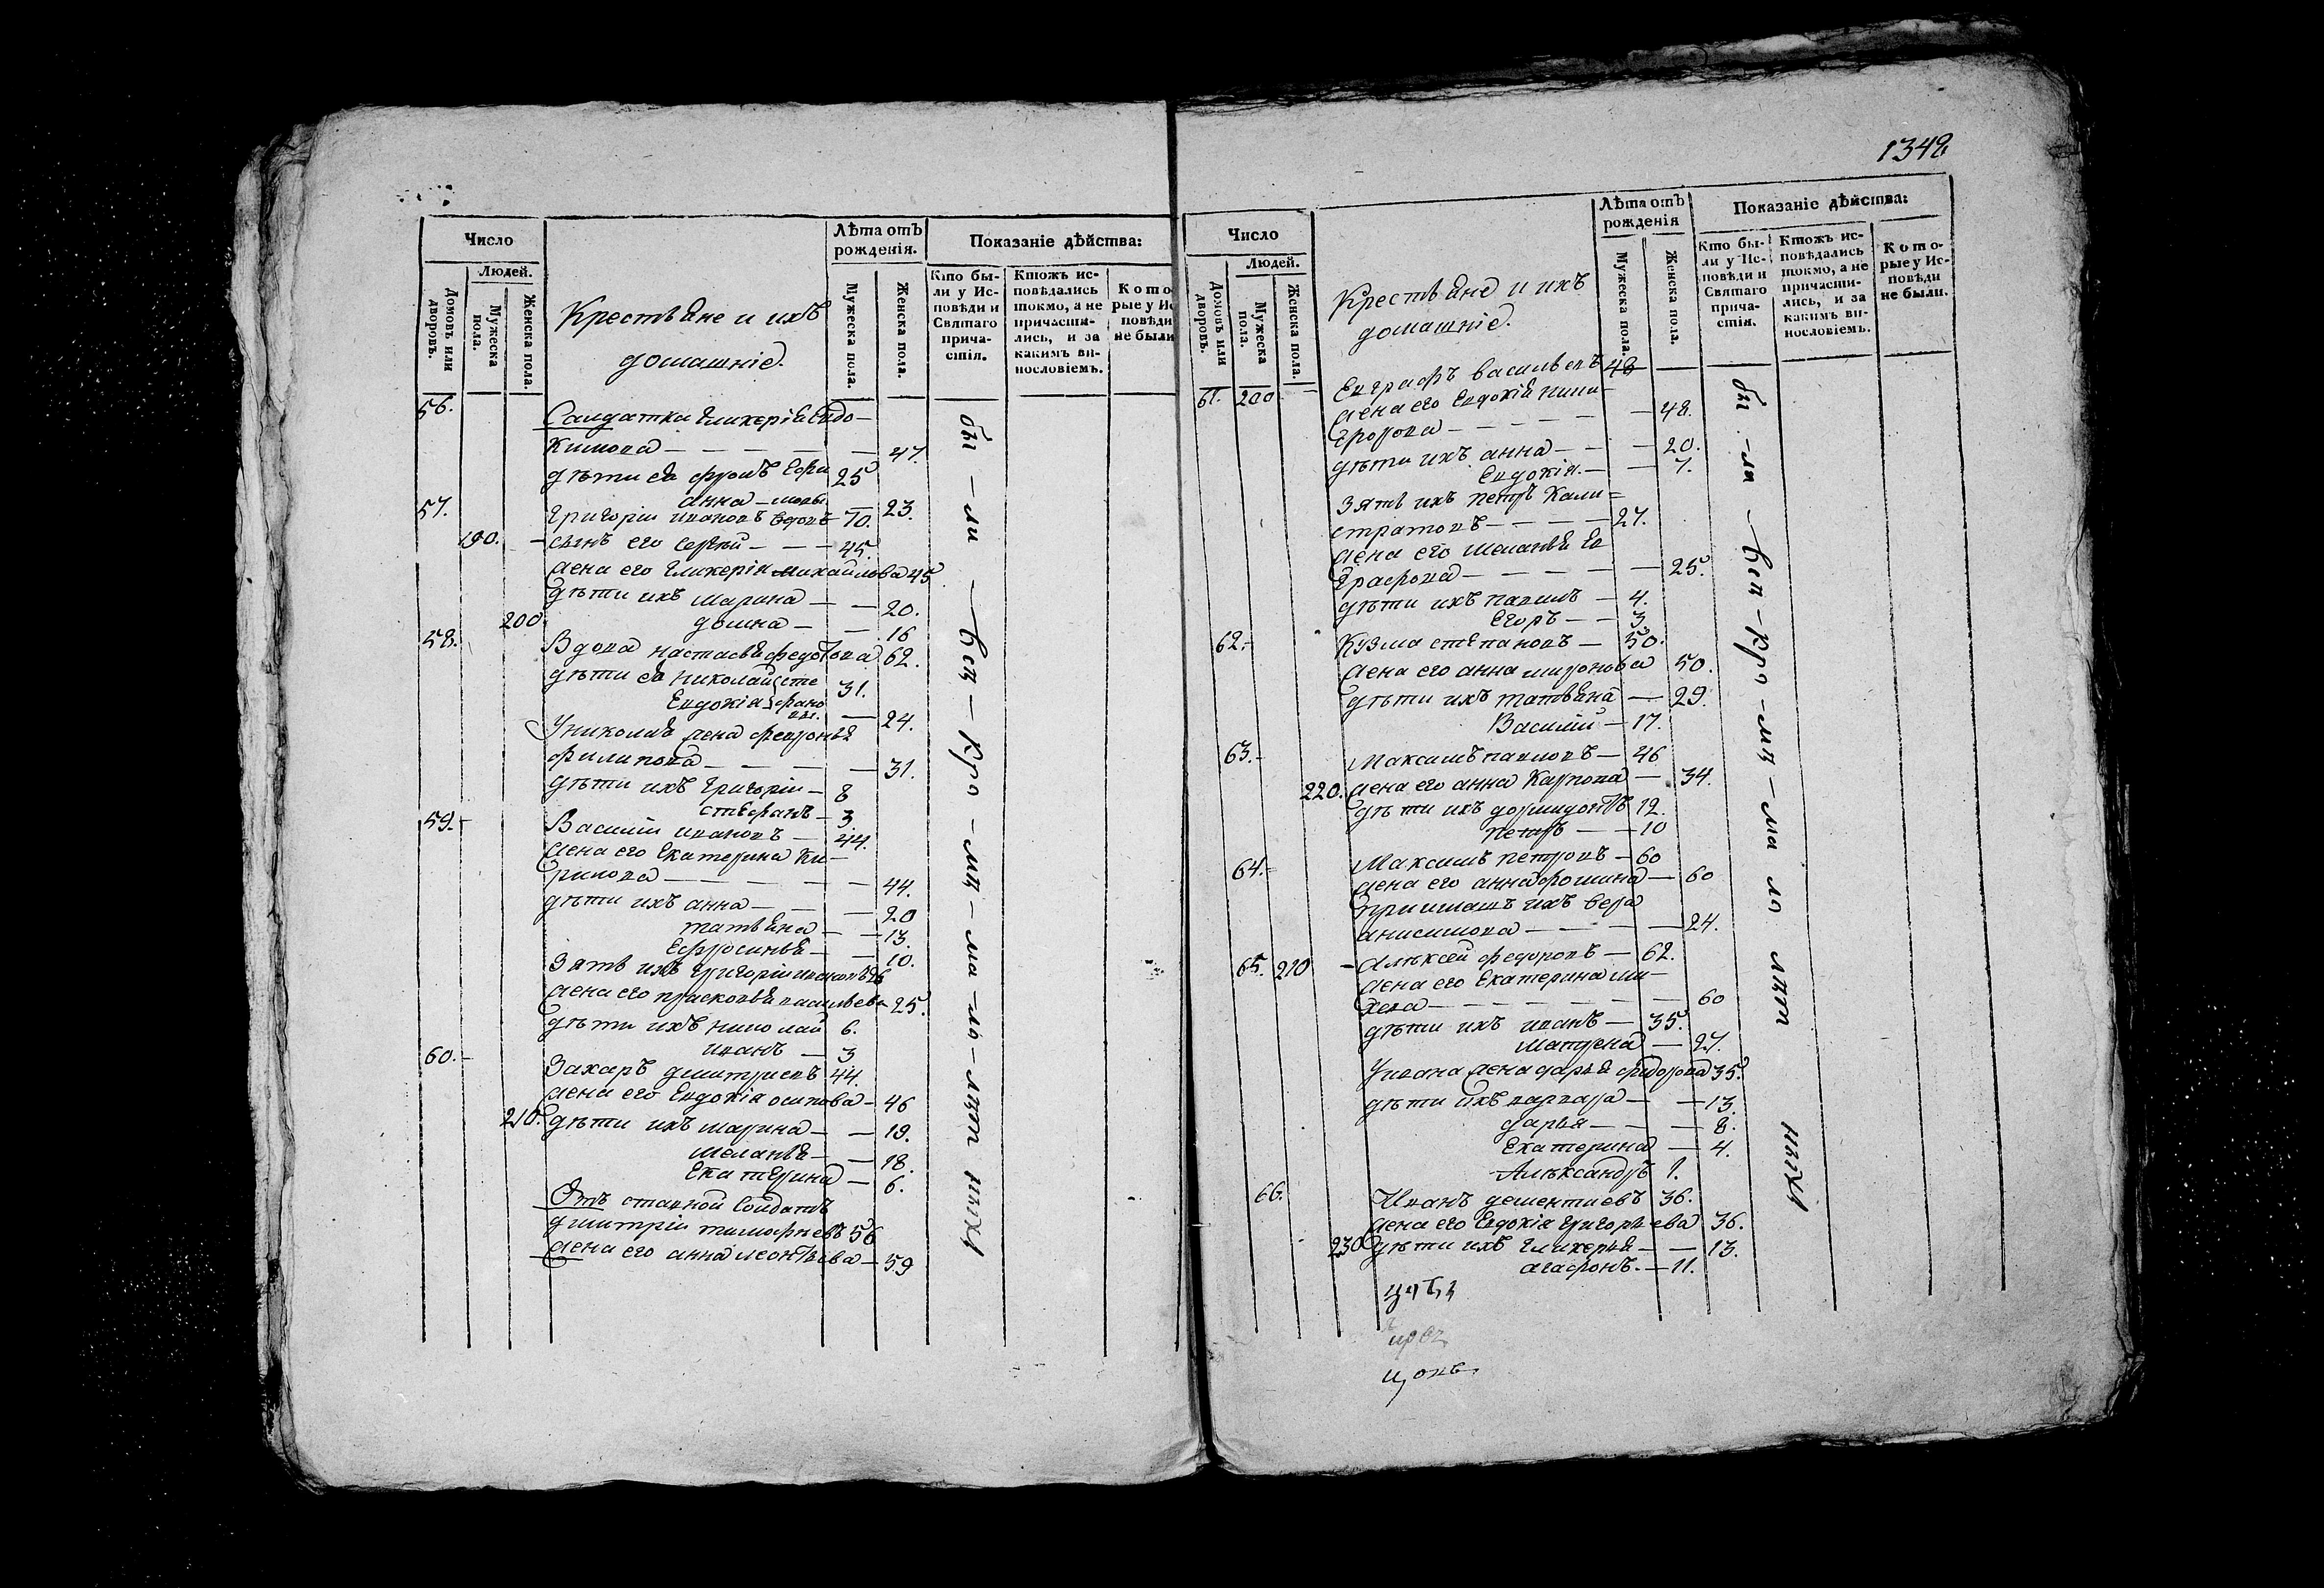 Число
Людей.
Домовъ или дворовъ.
Мужеска пола.
Женска пола.
Крестьяне и ихъ
домашніе.
Лѣта отъ рожденія.
Мужеска пола.
Женска пола.
Показаніе дѣйства:
Кто бы-
ли у Ис-
повѣди и
Святаго
прича-
стія.
Ктожъ ис-
повѣдались
токмо, а не
причасти-
лись, и за
какимъ ви-
нословіемъ.
Кото
рые у Ис
повѣди
не были
56. Салдатка гликеріяевдо-
кимова — 47.
дѣти ея фролъ Ефи 25
анна — мовы — 23.
57. григоріи ивановъ вдовъ 70.
190. — сынъ его сергѣй — 45.
жена его гликерія михаилова 45
дѣти ихъ марина — 20.
200 домна — 16
58. Вдова настасья федотова 62.
дѣти ея николай сте 31.
Евдокія фано
вы. — 24.
У николая жена февронья
филипова — 31.
дѣти ихъ григоріи — 8
стефанъ — 3
59. Василіи ивановъ — 44.
жена его Екатерина ки-
рилова — 44.
дѣти ихъ анна — 20
татьяна — 13.
Ефросинья — 10.
Зять ихъ григоріи ивановъ 26
жена его прасковья васильева 25.
дѣти ихъ николай 6.
иванъ — 3
60. Захаръ дмитриевъ 44.
жена его Евдокія осипова — 46
210. дѣти ихъ марина — 19.
меланья — 18.
Екатерина — 6.
Отъ ставной Солдатъ
димитріи тимофѣевъ 56
жена его анна леонтьева — 59
бы — ли — вст — кро — мѣ — ма — ло — лѣт нихъ
1348
Число
Людей.
Домовъ или дворовъ.
Мужеска пола.
Женска пола.
Крестьяне и ихъ
домашніе.
Лѣта отъ рожденія
Мужеска пола.
Женска пола.
Показаніе дѣйства:
Кто бы-
ли у Ис-
повѣди и
Святаго
прича-
стія.
Ктожъ ис-
повѣдались
токмо, а не
причасти-
лись, и за
какимъ ви-
нословіемъ.
Кото-
рые у Ис-
повѣди
не были.
61. 200 — Евграфъ васильевъ 48
жена его Евдокія ники-
форова — 48.
дѣти ихъ анна — 20.
Евдокія. — 7.
Зять ихъ петръ Кали=
стратовъ — 27.
жена его меланья Ев
графова — 25.
дѣти ихъ павелъ — 4.
Егоръ — 3
62. Кузма степановъ — 50.
жена его анна миронова 50.
дѣти ихъ татьяна — 29.
Василіи — 17.
63. Максимъ павловъ — 46
220. жена его анна Карпова — 34.
дѣти ихъ доримдонтъ 12.
петръ — 10
64. Максимъ петровъ — 60
жена его анна фомина — 60
приимашъ ихъ вера
анисимова — 24.
65. 210 — Алѣксей федоровъ — 62.
жена его Екатерина ми-
хеева — 60
дѣти ихъ иванъ — 35.
матрена — 27.
У ивана жена дарья сидорова 35.
дѣти ихъ варвара — 13.
дарья — 8.
Екатерина — 4.
Алѣксандръ 1.
66. Иванъ дементиевъ 36.
жена его Евдокія григорьева 36.
230 дѣти ихъ гликерья — 13.
агафонъ. — 11.
бы — ли — вст — кро — мѣ — ма ло лѣт нихъ